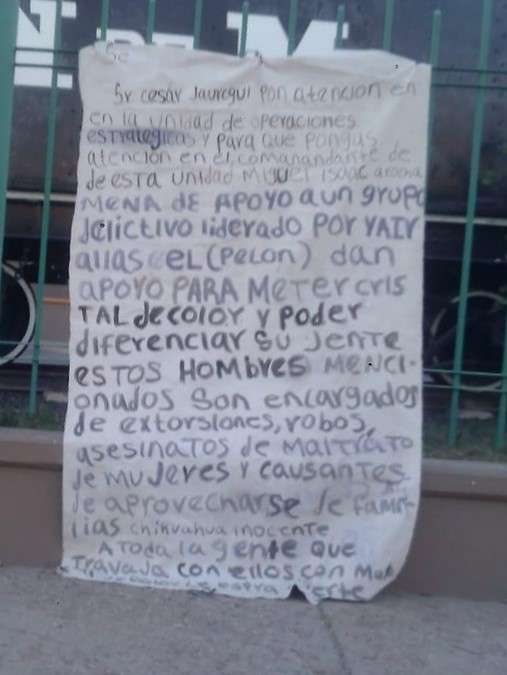 Sr cesar Jauregui pon atencion en
en la unidad de operaciones
estrategicas y para que pongas
atencion en el comanandante de
de esta unidad Miguel Isaac
MENA DE APOYO a un grupo
delictivo liderado POR YAIR
alias EL (PELON) dan
apoyo PARA METER CRIS
TAL de color y poder
diferenciar su Jente
ESTOS HOMBRES MENCI-
onados son encargados
de extorsiones, robos,
asesinatos de Maltrato
de mujeres y causantes
de aprovecharse de fami-
lias chihuahua inocente
A toda la gente que
travaja con ellos con